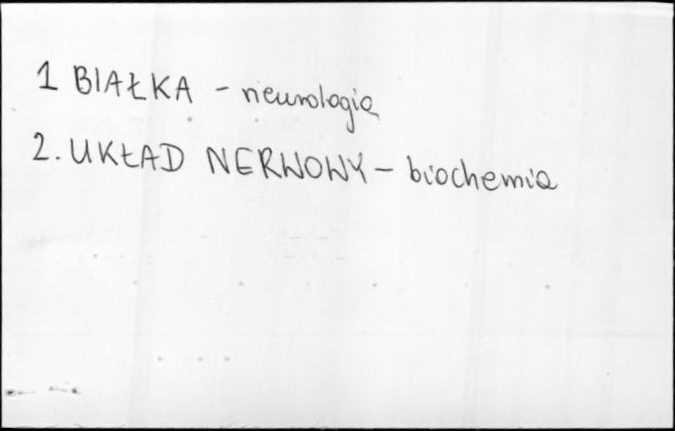 1 BIAŁKA - neurologia
2. UKŁAD NERWOWY - biochemia